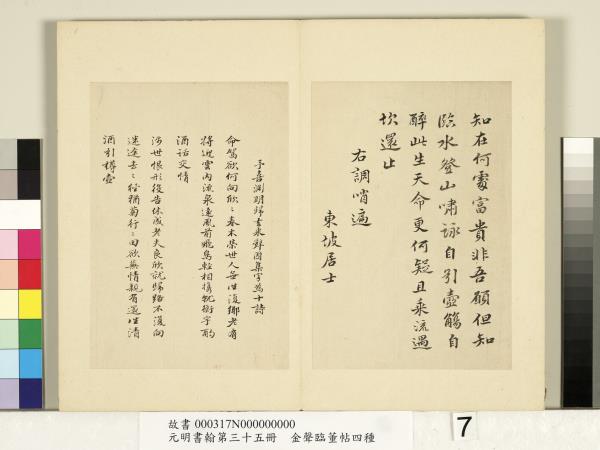 知在何處富貴非吾願但知
臨水登山嘯詠自引壺觴自
醉此生天命更何疑且乘流遇
坎還止
右調哨遍
東坡居士
予喜淵明歸去來辭因集字為十詩
命駕欲何向欣〻春木榮世人無往復鄉老有
將迎雲內流泉遠風前飛鳥輕相攜就衡宇酌
酒話交情
涉世恨形役告休成老夫良欣就歸路不復向
迷途去〻徑猶菊行〻田欲蕪情親有還往清
酒引樽壺
故書 000317N000000000
元明書翰第三十五冊 金聲臨董帖四種
7